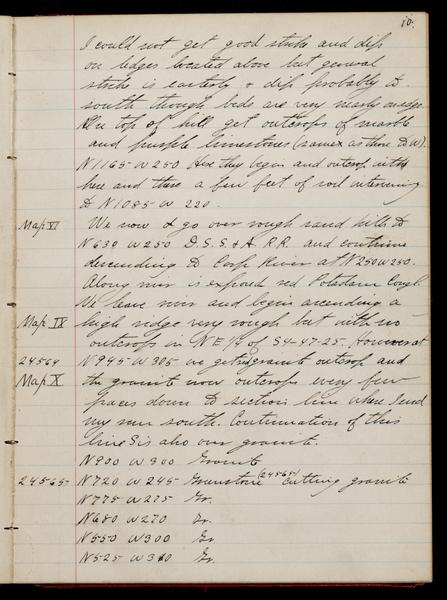 10.
I could not get good strike and dip
on ledges located above but general
strike is easterly & dip probably to
south though beds are very nearly on edge.
On top of hill get outcrops of marble
and purple limestones (same as those to W).
N1165-W250 Here they begin and outcrop with
here and there a few feet of soil intervening
to N1085-W 220.
Map VI We now & go over rough sand hills to
N639 W250 D.S.S.&A. R.R. and continue
descending to Carp River at N250W250.
Along river is exposed red Potsdam Congl.
We leave river and begin ascending a
Map IX high ridge very rough but with no
outcrops in NE1/4 of S4-47-25. However at
24564 N945-W305 we get granite outcrop and
Map X. the granite now outcrops every few
paces down to section line where I end
my run south. Continuation of this
line S is also over granite.
N900 W300 Granite
24565 N720 W245 Greenstone (24565) cutting granite
N775 W275 Gr.
N680 W270 Gr.
N550 W300 Gr.
N525 W310 Gr.